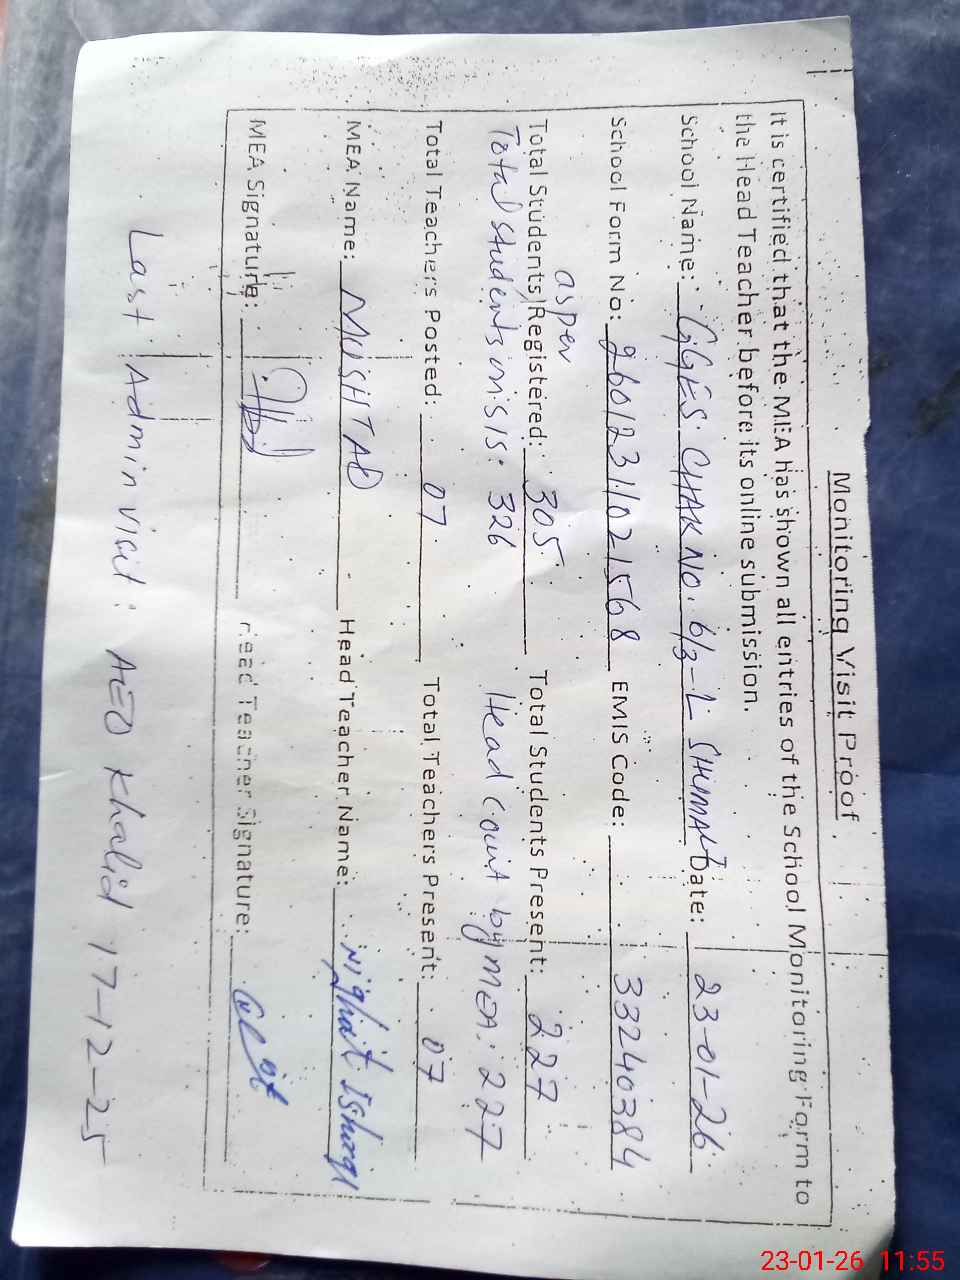 Monitoring Visit Proof
It is certified that the MEA has shown all entries of the School Monitoring Form to
the Head Teacher before its online submission.
School Name: GGES CHAK NO. 6/3-L SHUMALI Date: 23-01-26
School Form No: 2601231021568 EMIS Code: 33240384
as per
Total Students Registered: 305 Total Students Present: 227
Total students in SIS: 326 Head Count by MEA: 227
Total Teachers Posted: 07 Total Teachers Present: 07
MEA Name: MUSHTAQ Head Teacher Name: Nighat Ishaqu
MEA Signature: Head Teacher Signature:
Last Admin visit: AEO Khalid 17-12-25
23-01-26 11:55